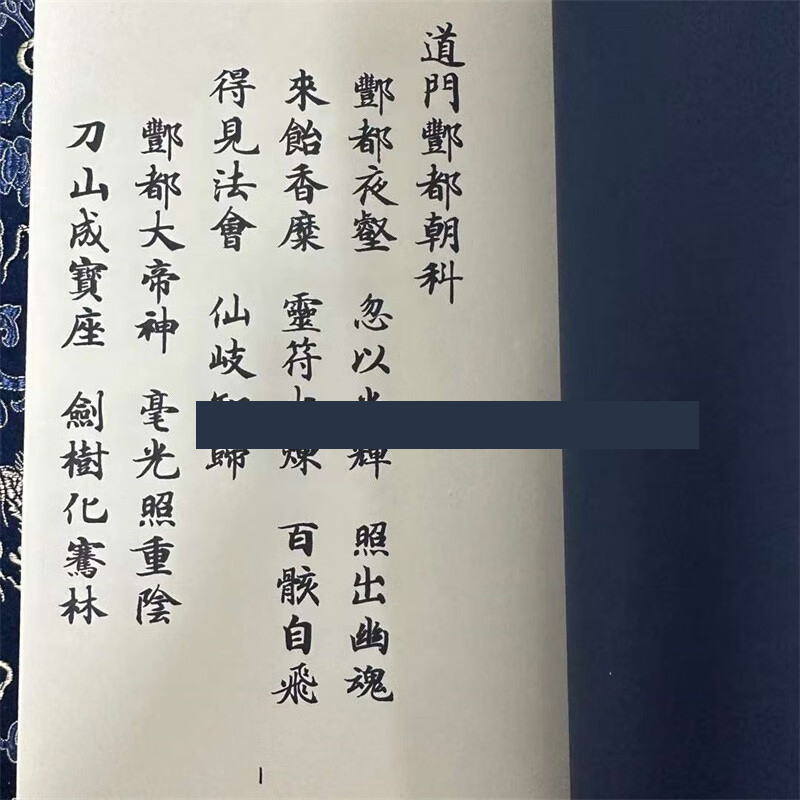 道門酆都朝科
酆都夜壑 忽以輝 照出幽魂
來飴香糜 靈符煉 百骸自飛
得見法會 仙岐歸
酆都大帝神 毫光照重陰
刀山成寶座 劍樹化騫林